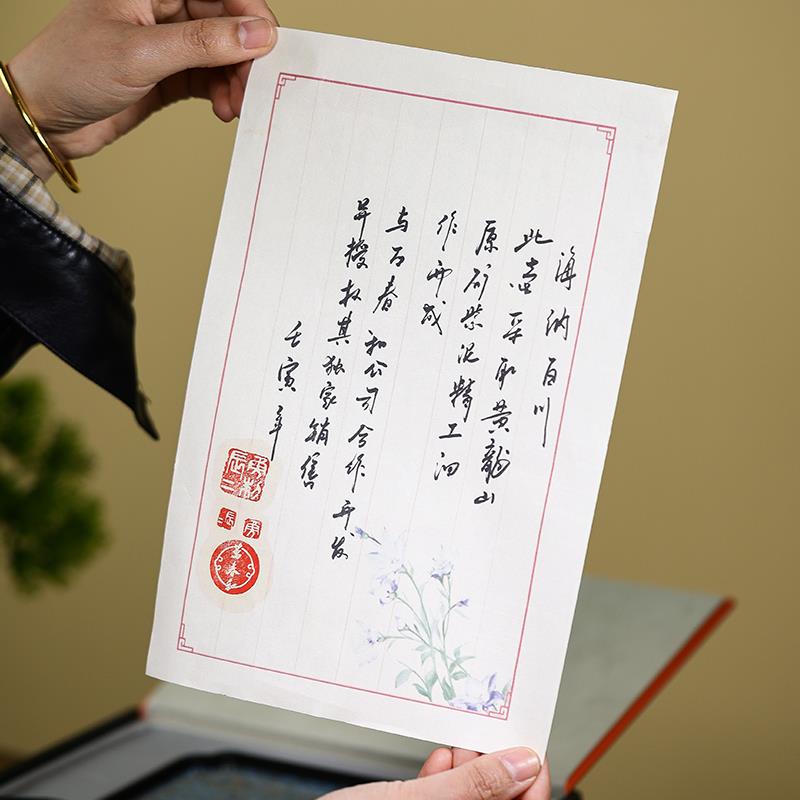 海纳百川
此壶采取黄龙山
原矿紫泥精工细
作而成
与春和公司合作开发
并授权其独家销售
壬寅年